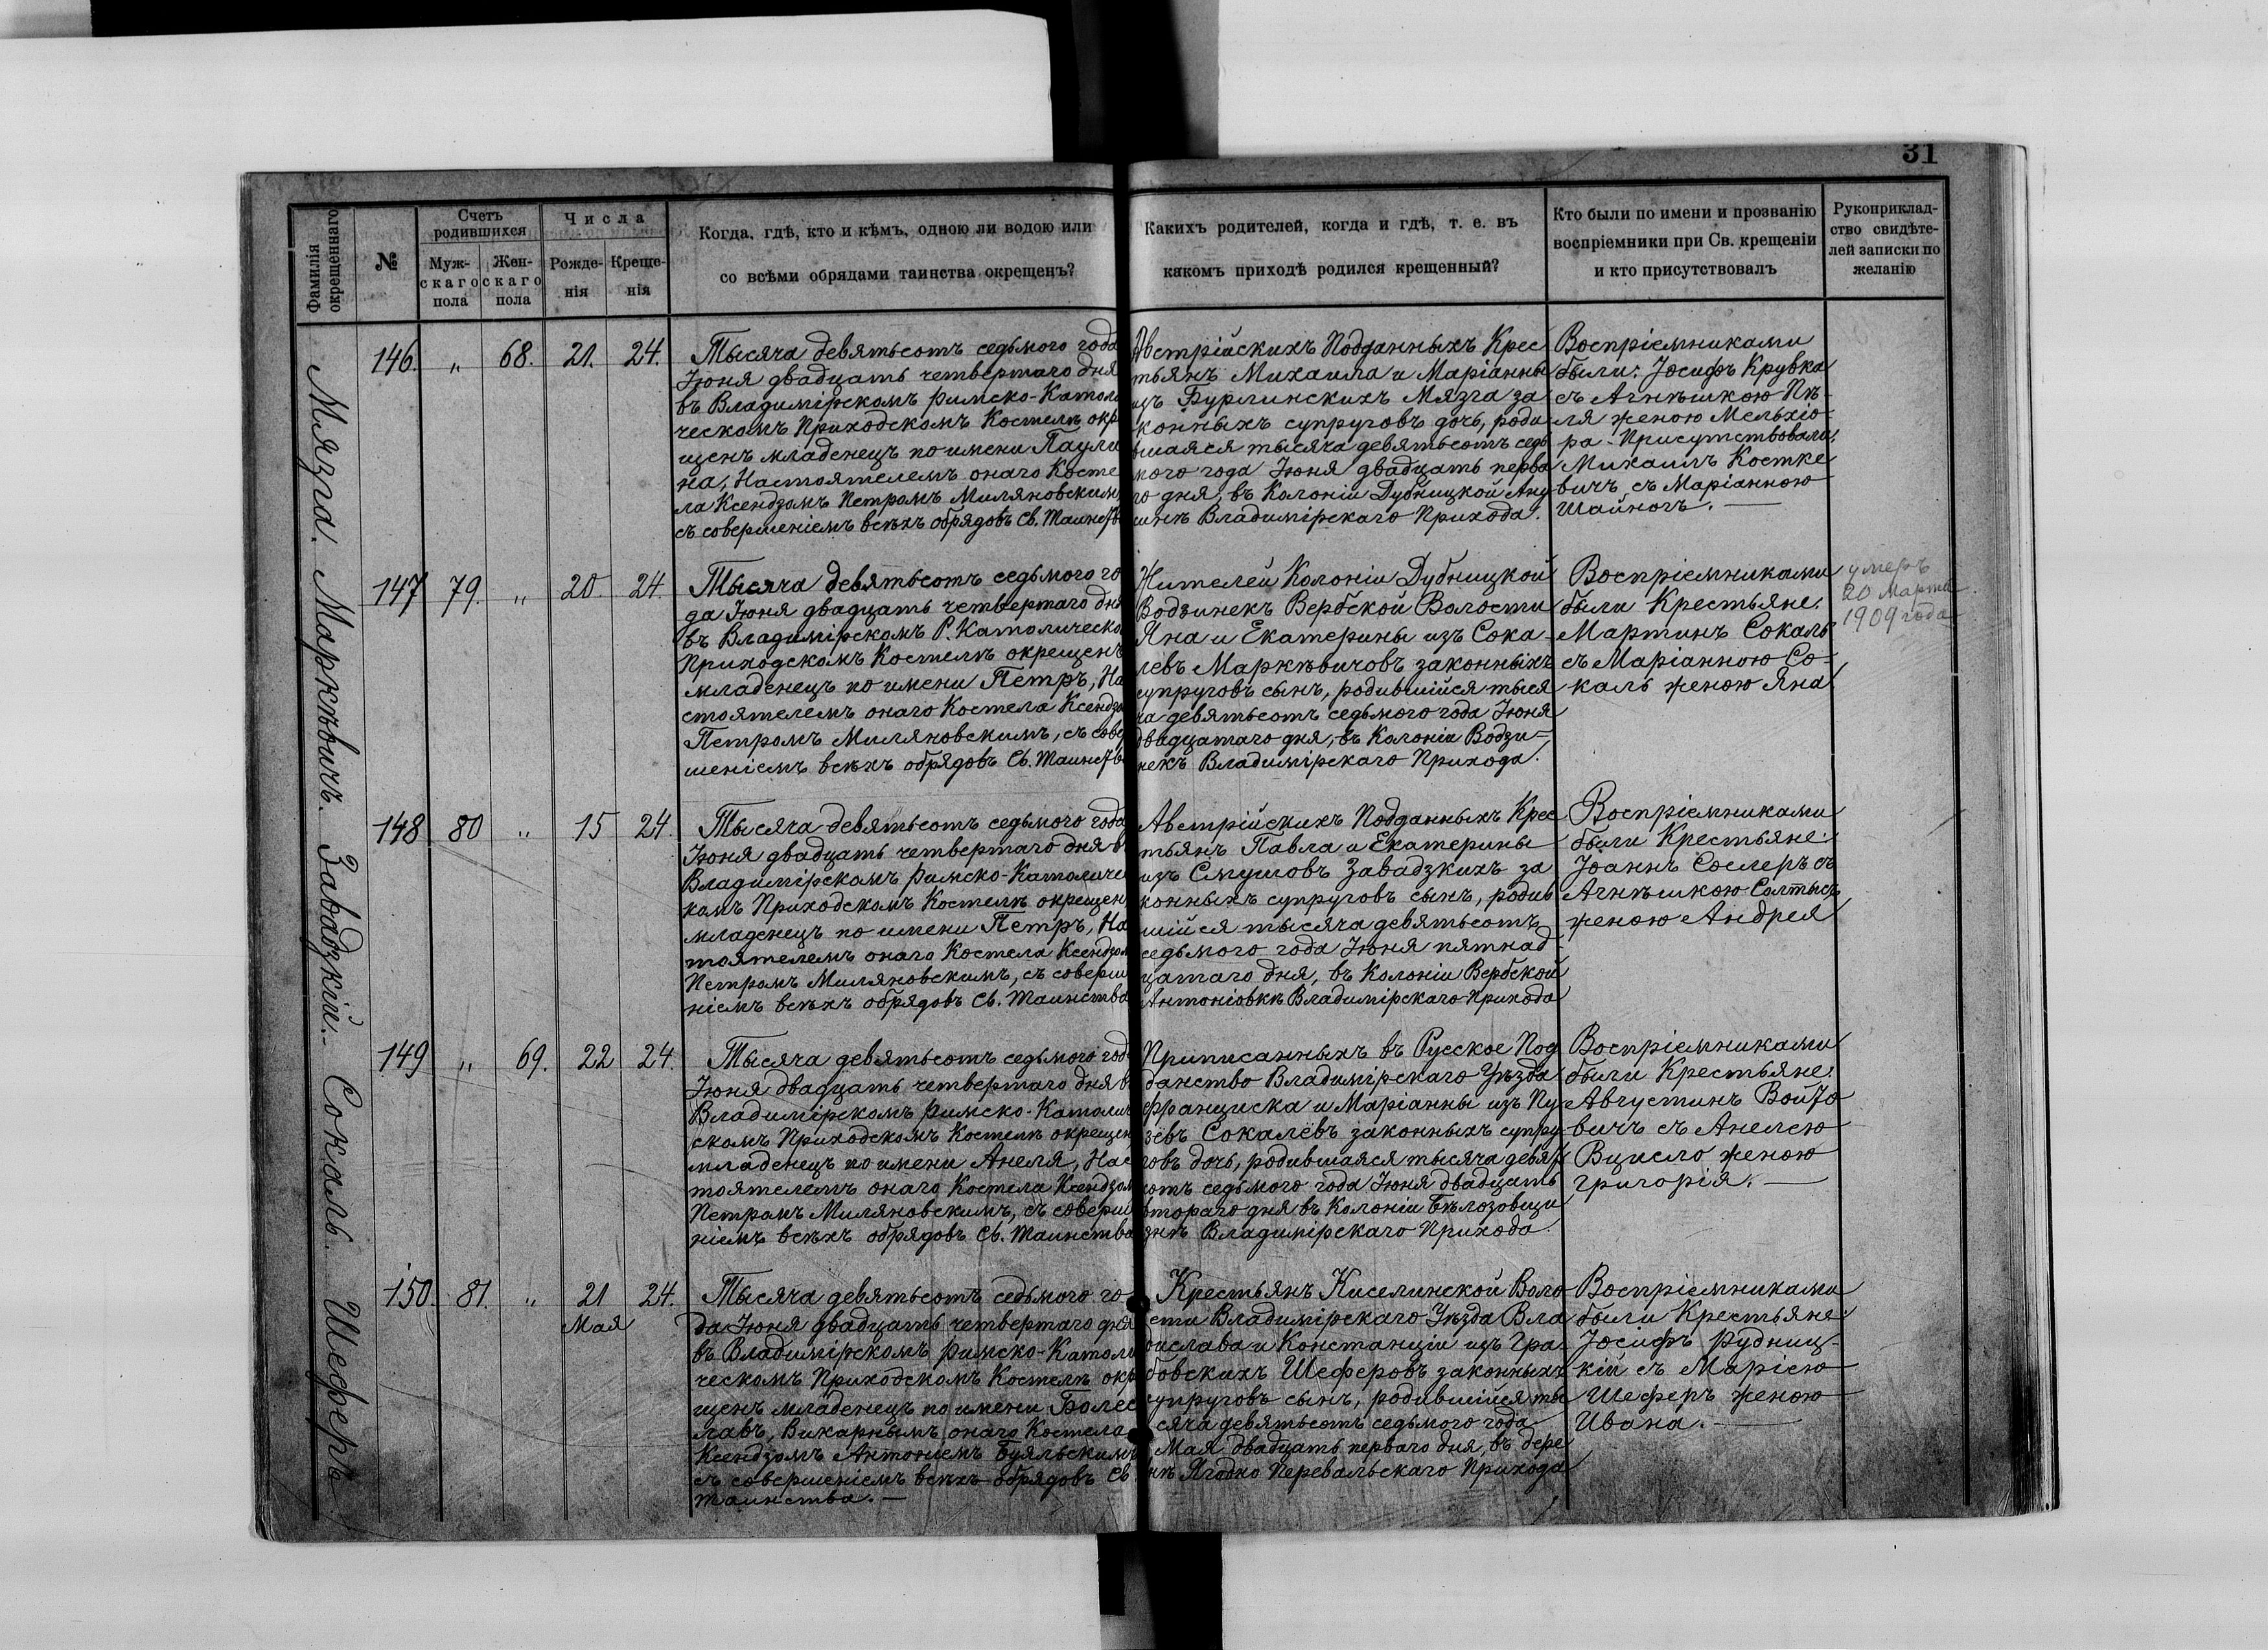 31
Фамилія
окрещеннаго
№
Счетъ
родившихся
Муж-
скаго
пола
Жен-
скаго
пола
Числа
Рожде-
нія
Креще-
нія
Когда, гдѣ, кто и кѣмъ, одною ли водою или
со всѣми обрядами таинства окрещенъ?
Каких​ъ родителей, когда и гдѣ, т. е. въ
какомъ приходѣ родился крещенный?
Кто были по имени и прозванію
воспріемники при Св. крещеніи
и кто присутствовалъ
Рукоприклад-
ство свидѣте-
лей записки по
желанію
Мязга.
146. „ 68. 21. 24.
Тысяча девятьсотъ седьмого года
Іюня двадцать четвертаго дня
въ Владимірскомъ Римско-Катол
ческомъ Приходскомъ Костелѣ окр
щенъ младенецъ по имени Паули
на, Настоятелемъ онаго Косте
ла Ксендзомъ Петромъ Миляновскимъ
съ совершеніемъ всѣхъ обрядовъ Св. Таинств
Австрійскихъ Подданныхъ Крес
тьянъ Михаила и Маріанны
изъ Бурлинскихъ Мязга за
конныхъ супруговъ дочь, роди
вшаяся тысяча девятьсотъ седь
мого года Іюня двадцать перва
го дня, въ Колоніи Дубницкой Ану
синѣ Владимірскаго Прихода.
Воспріемниками
были: Іосифъ Крувка
съ Агнѣшкою Пѣ-
ля женою Мельхіо-
ра. Присутствовали:
Михаилъ Костке
вичъ съ Маріанною
Шайногъ.
Маркѣвичъ.
147 79. „ 20 24.
Тысяча девятьсотъ седьмого го
да Іюня двадцать четвертаго дня
въ Владимірскомъ Р. Католическо
Приходскомъ Костелѣ окрещенъ
младенецъ по имени Петръ, На
стоятелемъ онаго Костела Ксендзо
Петромъ Миляновскимъ, съ совер
шеніемъ всѣхъ обрядовъ Св. Таинств
Жителей Колоніи Дубницкой
Водзинекъ Вербской Волости
Яна и Екатерины изъ Сока-
левъ Маркѣвичовъ законныхъ
супруговъ сынъ, родившійся тыся
ча девятьсотъ седьмого года Іюня
двадцатаго дня, въ Колоніи Водзи-
некъ Владимірскаго Прихода.
Воспріемниками
были Крестьяне:
Мартинъ Сокаль
съ Маріанною Со-
каль женою Яна
умеръ
20 Марта
1909 года
Завадзкій.
148 80 „ 15 24.
Тысяча девятьсотъ седьмого года
Іюня двадцать четвертаго дня в
Владимірскомъ Римско-Католиче
комъ Приходскомъ Костелѣ окрещен
младенецъ по имени Петръ, На
тоятелемъ онаго Костела Ксендзом
Петромъ Миляновскимъ, съ соверше
ніемъ всѣхъ обрядовъ Св. Таинства
Австрійскихъ Подданныхъ Крес
тьянъ Павла и Екатерины
изъ Завадзкихъ за
конныхъ супруговъ сынъ, родив
шійся тысяча девятьсотъ
седьмого года Іюня пятнад-
цатаго дня, въ Колоніи Вербской
Антоніовкѣ Владимірскаго Прихода
Воспріемниками
были Крестьяне:
Іоаннъ Сослеръ съ
Агнѣшкою Солтысъ
женою Андрея
Сокаль.
149 „ 69. 22 24.
Тысяча девятьсотъ седьмого год
Іюня двадцать четвертаго дня в
Владимірскомъ Римско-Католич
скомъ Приходскомъ Костелѣ окрещен
младенецъ по имени Анеля, Нас
тоятелемъ онаго Костела Ксендзом
Петромъ Миляновскимъ, съ соверше
ніемъ всѣхъ обрядовъ Св. Таинства
Приписанныхъ въ Русское Под
данство Владимірскаго Уѣзда
Франциска и Маріанны изъ Пу
зёвъ Сокалёвъ законныхъ супру-
говъ дочь, родившаяся тысяча девять
сотъ седьмого года Іюня двадцать
втораго дня въ Колоніи Бѣлозовщи
знѣ Владимірскаго Прихода.
Воспріемниками
были Крестьяне:
Августинъ Войто
вичъ съ Анелею
Вцисло женою
Григорія.
Шеферъ.
150. 81. „ 21 24.
Мая
Тысяча девятьсотъ седьмого го
да Іюня двадцать четвертаго дня
въ Владимірскомъ Римско-Катол
ческомъ Приходскомъ Костелѣ окр
щенъ младенецъ по имени Болес
лавъ, Викарнымъ онаго Костела
Ксендзомъ Антоніемъ Буяльскимъ
съ совершеніемъ всѣхъ обрядовъ Св.
таинства.
Крестьянъ Киселинской Воло
сти Владимірскаго Уѣзда Вла
дислава и Констанціи изъ Гра-
бовскихъ Шеферовъ законныхъ
супруговъ сынъ, родившійся ты
сяча девятьсотъ седьмого года
Мая двадцать перваго дня, въ дере
нѣ Ягодно Перевальскаго Прихода
Воспріемниками
были Крестьяне:
Іосифъ Рудниц-
кій съ Маріею
Шеферъ женою
Ивана.